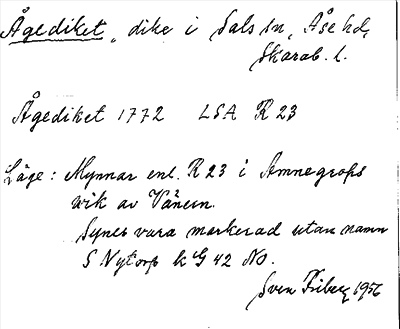 Ågediket, dike i Sals sn, Åse hd,
Skarab. l.
Ågediket 1772 LSA R 23
Läge: Mynnar enl. R 23 i Amnegrops
wik av Vänern.
Synes vara markerad utan namn
S Nytorp k G 42 NO.
Sven Friberg 1956